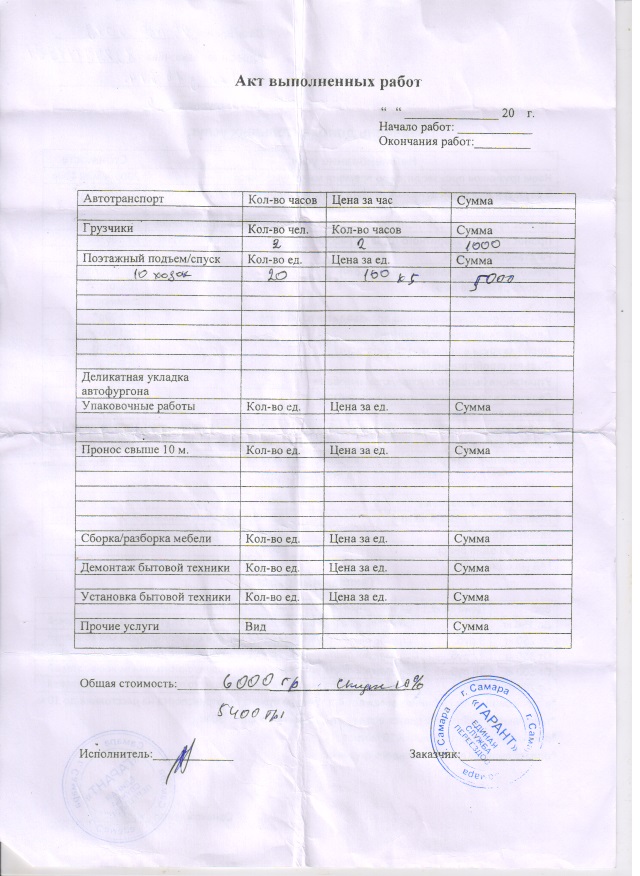 Акт выполненных работ
“ “ _______________ 20 г.
Начало работ: ____________
Окончания работ:_________
Автотранспорт Кол-во часов Цена за час Сумма
Грузчики Кол-во чел. Кол-во часов Сумма
2 2 1000
Поэтажный подъем/спуск Кол-во ед. Цена за ед. Сумма
10 20 5000
Деликатная укладка
автофургона
Упаковочные работы Кол-во ед. Цена за ед. Сумма
Пронос свыше 10 м. Кол-во ед. Цена за ед. Сумма
Сборка/разборка мебели Кол-во ед. Цена за ед. Сумма
Демонтаж бытовой техники Кол-во ед. Цена за ед. Сумма
Установка бытовой техники Кол-во ед. Цена за ед. Сумма
Прочие услуги Вид Сумма
Общая стоимость: 6000 скидка 10%
5400
Исполнитель:_____________
Заказчик:_____________
г. Самара
«ГАРАНТ»
ЕДИНАЯ
СЛУЖБА